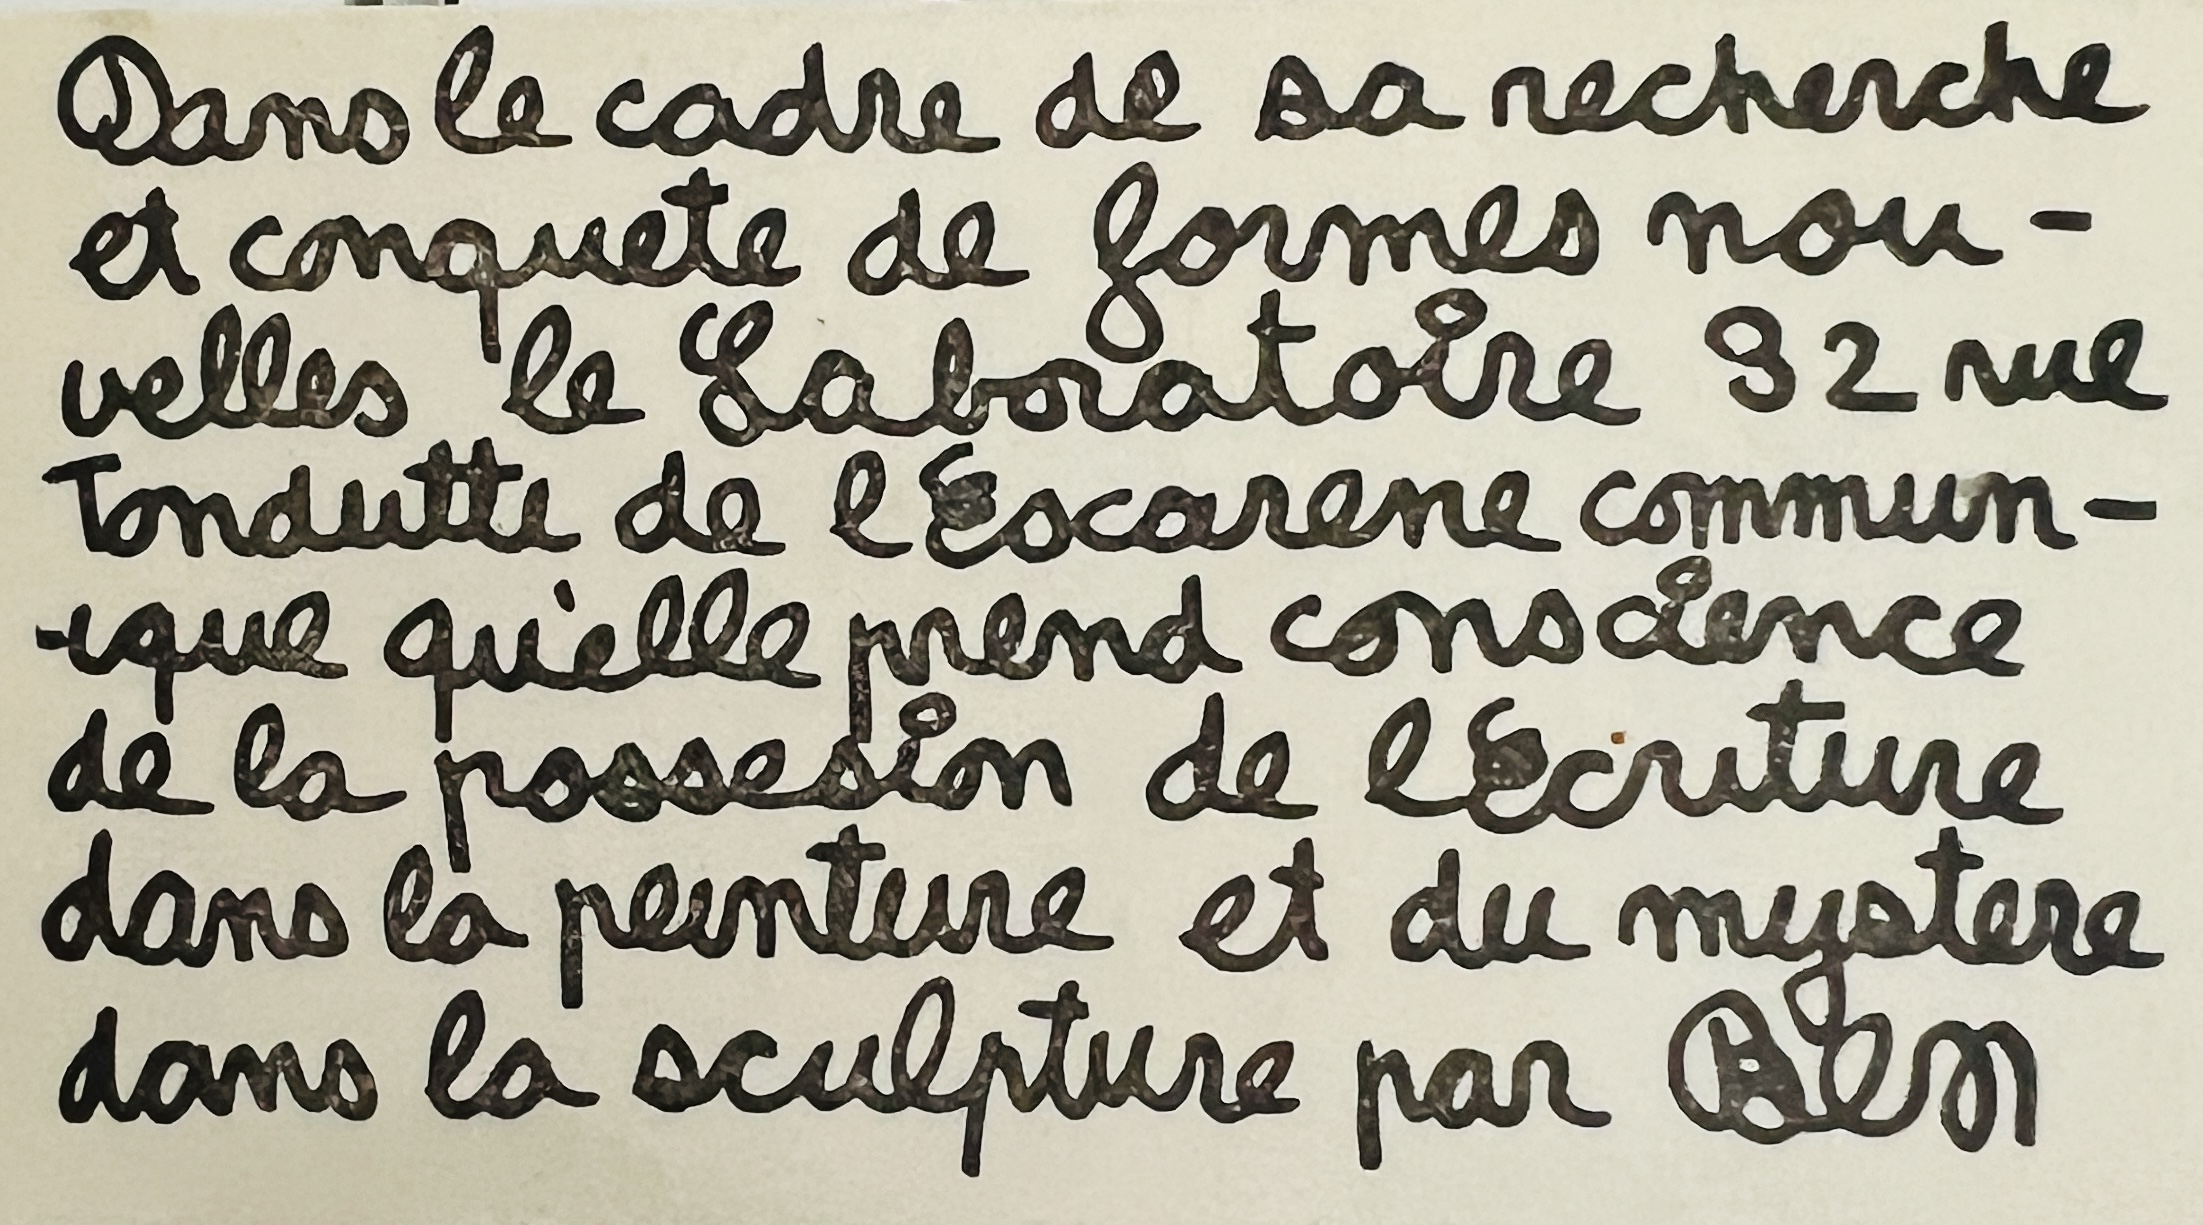 Dans le cadre de sa recherche
et conquete de formes nou-
velles le Laboratoire 32 rue
Tondutti de l Escarene commun-
-ique qu'elle prend conscience
de la possesion de l Ecriture
dans la peinture et du mystere
dans la sculpture par Ben